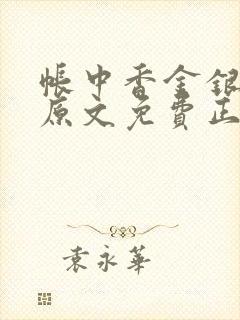 帐中香金银
原文免费正
袁永华